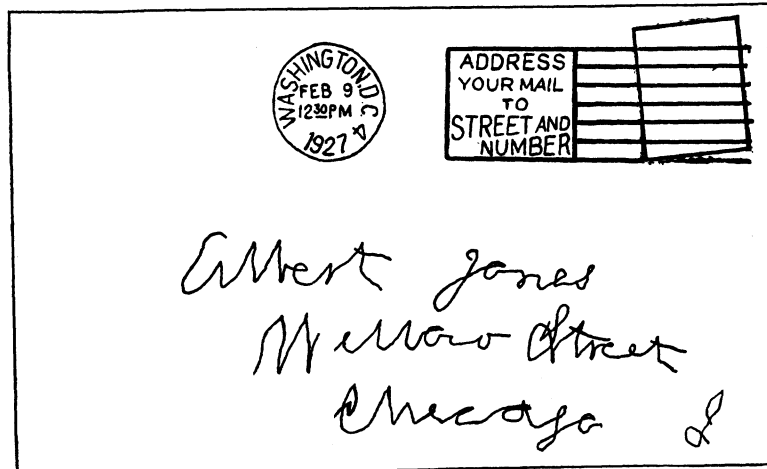 WASHINGTON, D.C.
FEB 9
12 30 PM
1927
ADDRESS
YOUR MAIL
TO
STREET AND
NUMBER
Jones
Street
Chicago